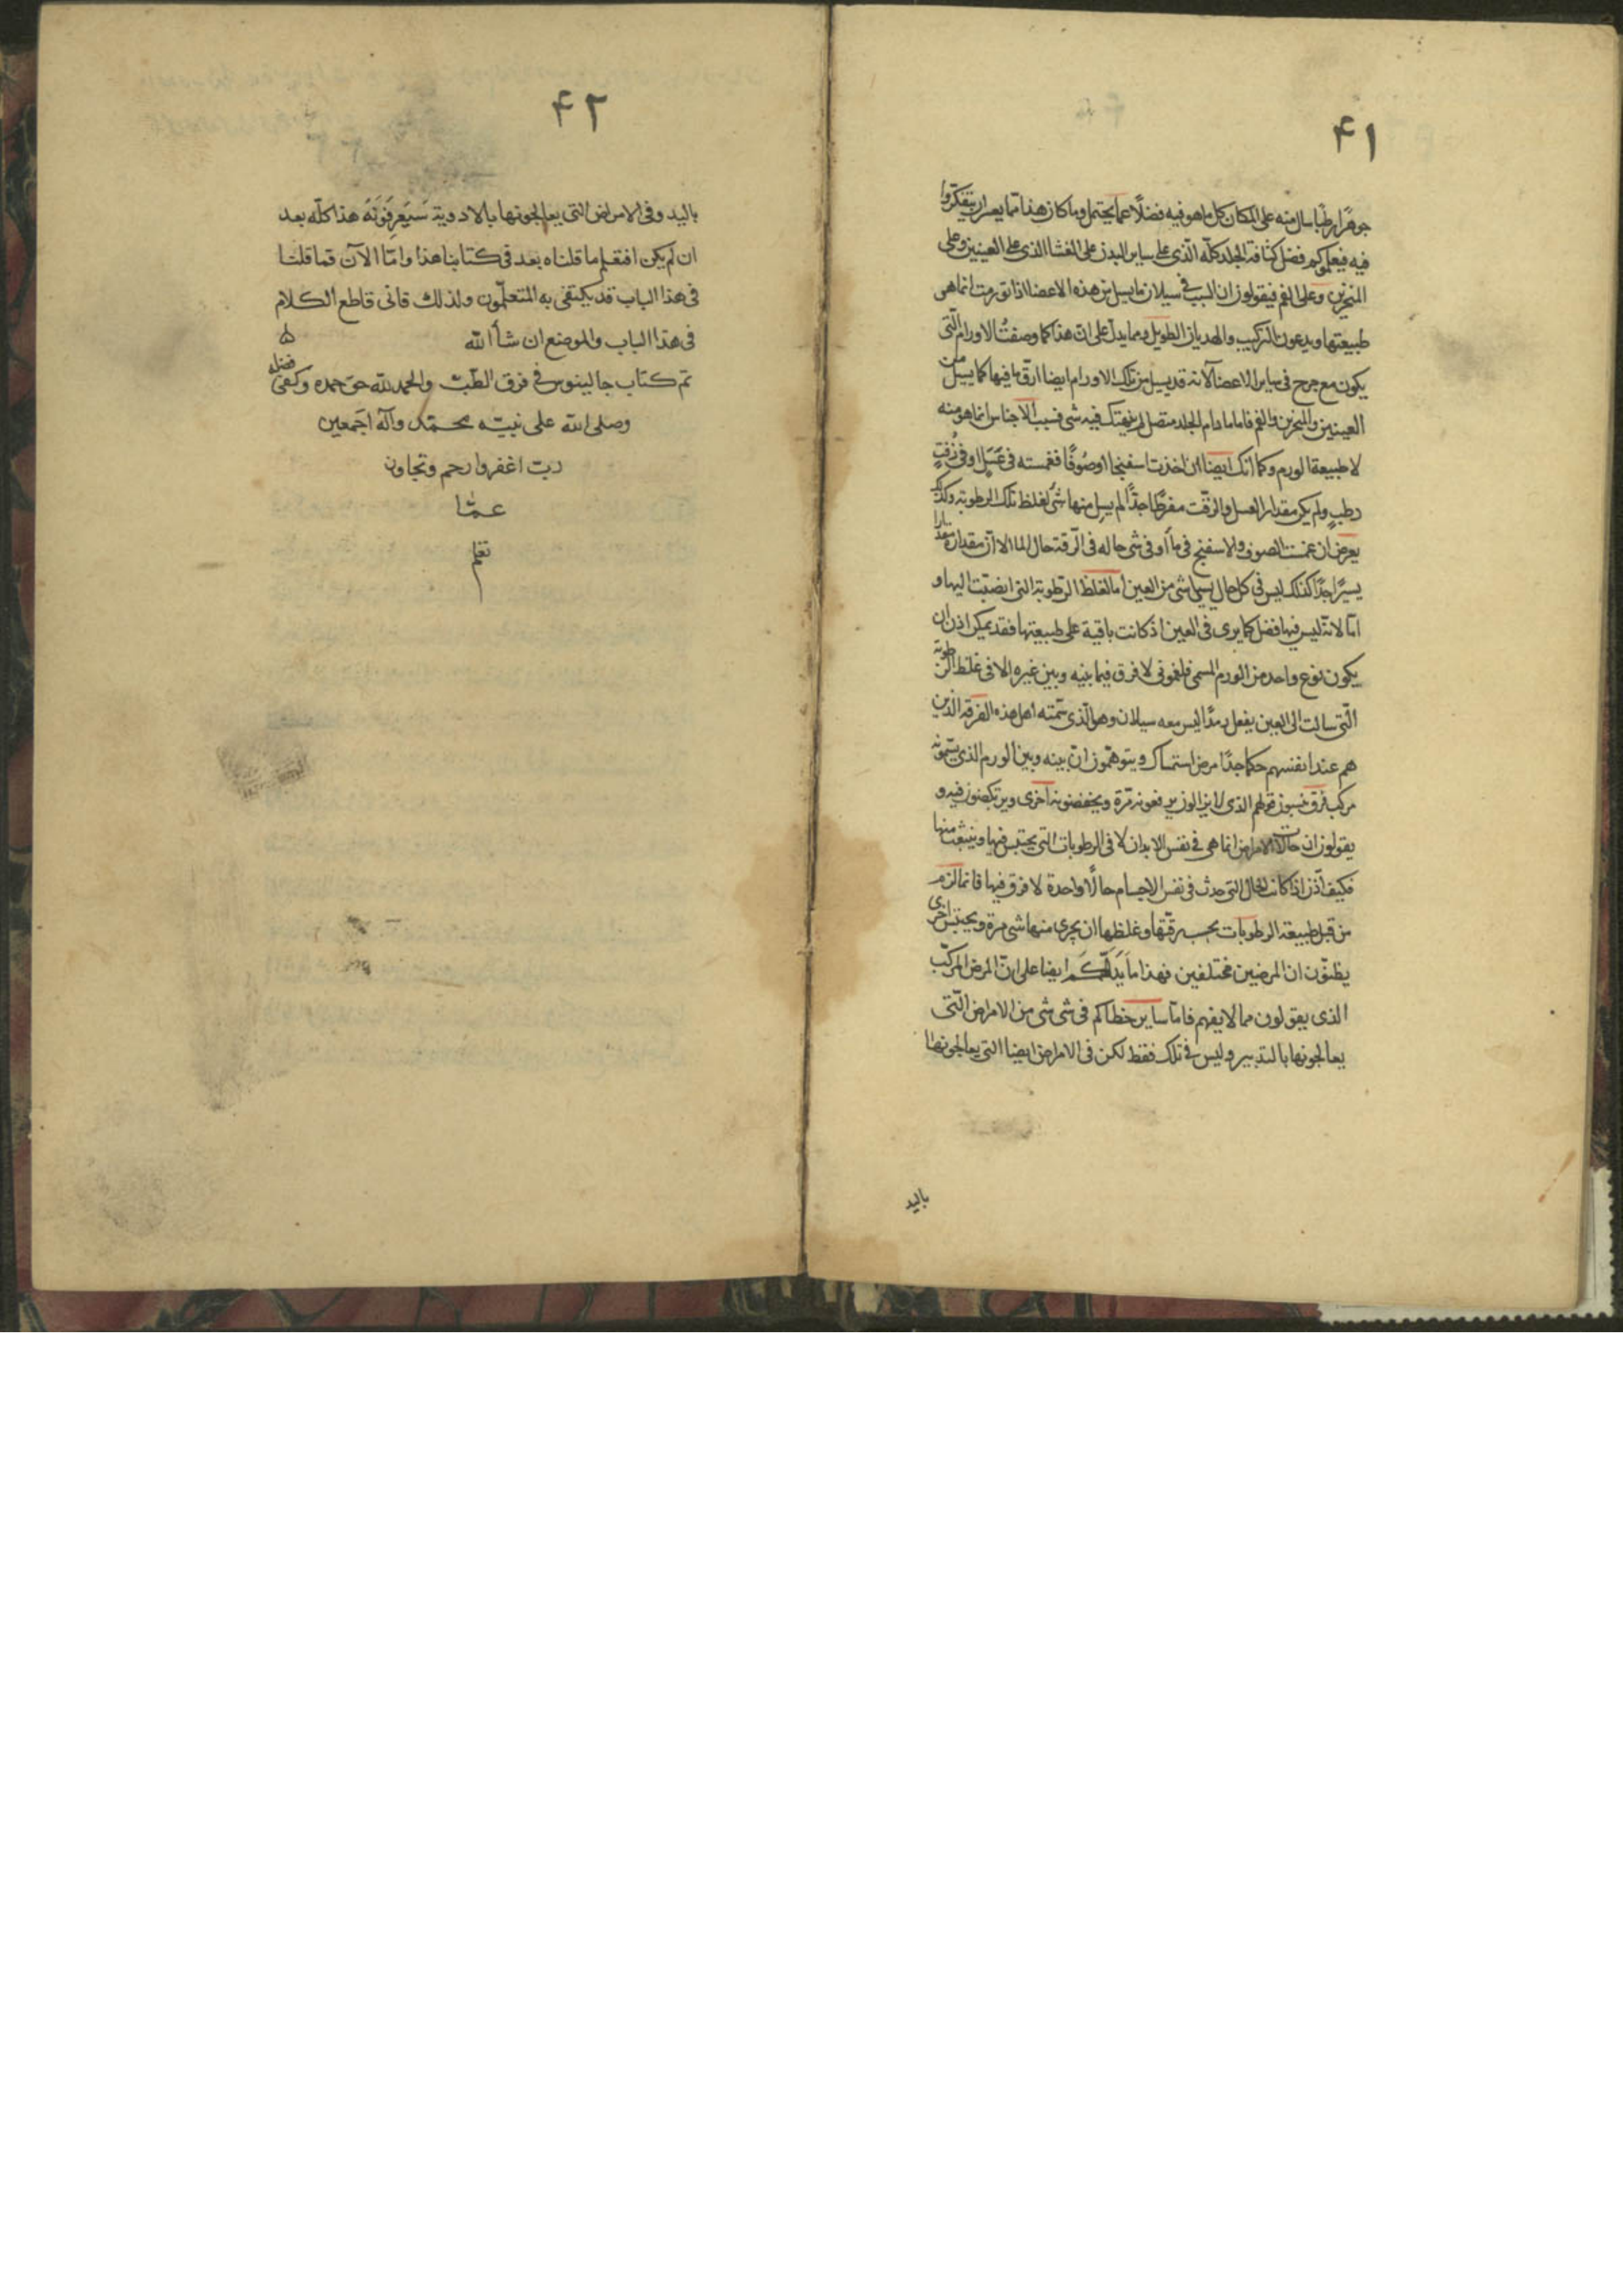 ۴۱
جوهرًا رطبًا سال منه على المكان كل ما هو فيه فضلًا عما يحتمل وما كان هذا مما يعسر ان يتفكروا
فيه فيعلموكم فضل كثافة الجلد كله الذى على ساير البدن على الغشا الذى على العينين وعلى
المنخرين وعلى الفم فيقولون ان السبب فى سيلان ما يسيل من هذه الاعضا اذا تورمت انما هى
طبيعتها ويدعون التركيب والهذيان الطويل ومما يدل على ان هذا كما وصفتُ الاورام الّتى
يكون مع جرح فى ساير الاعضا لانه قد يسيل من تلك الاورام ايضا ارق ما فيها كما يسيل من
العينين والمنخرين والفم فاما ما دام الجلد متصل لم ينهتك فيه شى فسبب الاحتباس انما هو منه
لا طبيعة الورم وكما انك ايضا ان اخذت اسفنجا او صُوفًا فغمسته فى عَسَلٍ او فى زفتٍ
رطبٍ ولم يكن مقدار العسل والزفت مفرطًا جدًّا لم يسل منها شى لغلظ تلك الرطوبة وكذلك
يعرض ان غمست الصوف والاسفنج فى ماء او فى شى حاله فى الرقة حال الما الا ان مقداره مقدارا
يسيرًا جدًا كذلك ليس فى كل حال يسيل شى من العين اما لغلظ الرطوبة التى انصبت اليها و
اما لانه ليس فيها فضل كما يرى فى العين اذ كانت باقية على طبيعتها فقد يمكن اذن ان
يكون نوع واحد من الورم المسمى فلغمونى لا فرق فيما بينه وبين غيره الا فى غلظ الرطوبة
الّتى سالت الى العين يفعل رمدًا ليس معه سيلان وهو الّذى سمته اهل هذه الفرقة الذين
هم عند انفسهم حكما جدًا مرض استمساك ويتوهمون ان بينه وبين الورم الذى يسمونه
مركب فرق فينسون قولهم الذى لا يزالون يرفعونه مرة ويخفضونه اخرى ويرتكضون فيه و
يقولون ان حالات الامراض انما هى فى نفس الابدان لا فى الرطوبات التى يحتبس فيها وينبعث منها
فكيف اذن اذا كانت الحال التى حدث فى نفس الاجسام حالًا واحدة لا فرق فيها فانما لزم
من قبل طبيعة الرطوبات بحسب رقتها وغلظها ان يجرى منها شى مرة ويحتبس اخرى
يظنّون ان المرضين مختلفين فهذا ما يَدلّكم ايضا على انّ المرض المركّب
الذى يقولون مما لا يفهم فامّا ساير خطاكم فى شى شى من الامراض الّتى
يعالجونها بالتدبير وليس فى تلك فقط لكن فى الامراض ايضا التى يعالجونها
باليد
۴۲
باليد وفى الامراض التى يعالجونها بالادوية سَيَعرفونَهُ هذا كلّه بعد
ان لم يكن افتعلم ما قلناه بعد فى كتابنا هذا وامّا الآن فما قلنا
فى هذا الباب قد يكتفى به المتعلّمون ولذلك فانى قاطع الكلام
فى هذا الباب والموضع ان شأ الله
تم كتاب جالينوس فى فرق الطبّ والحمد لله حق حمده وكفى فضله
وصلى الله على نبيّه محمّد وآله اجمعين
ربّ اغفر وارحم وتجاوز
عمّا
تعلم